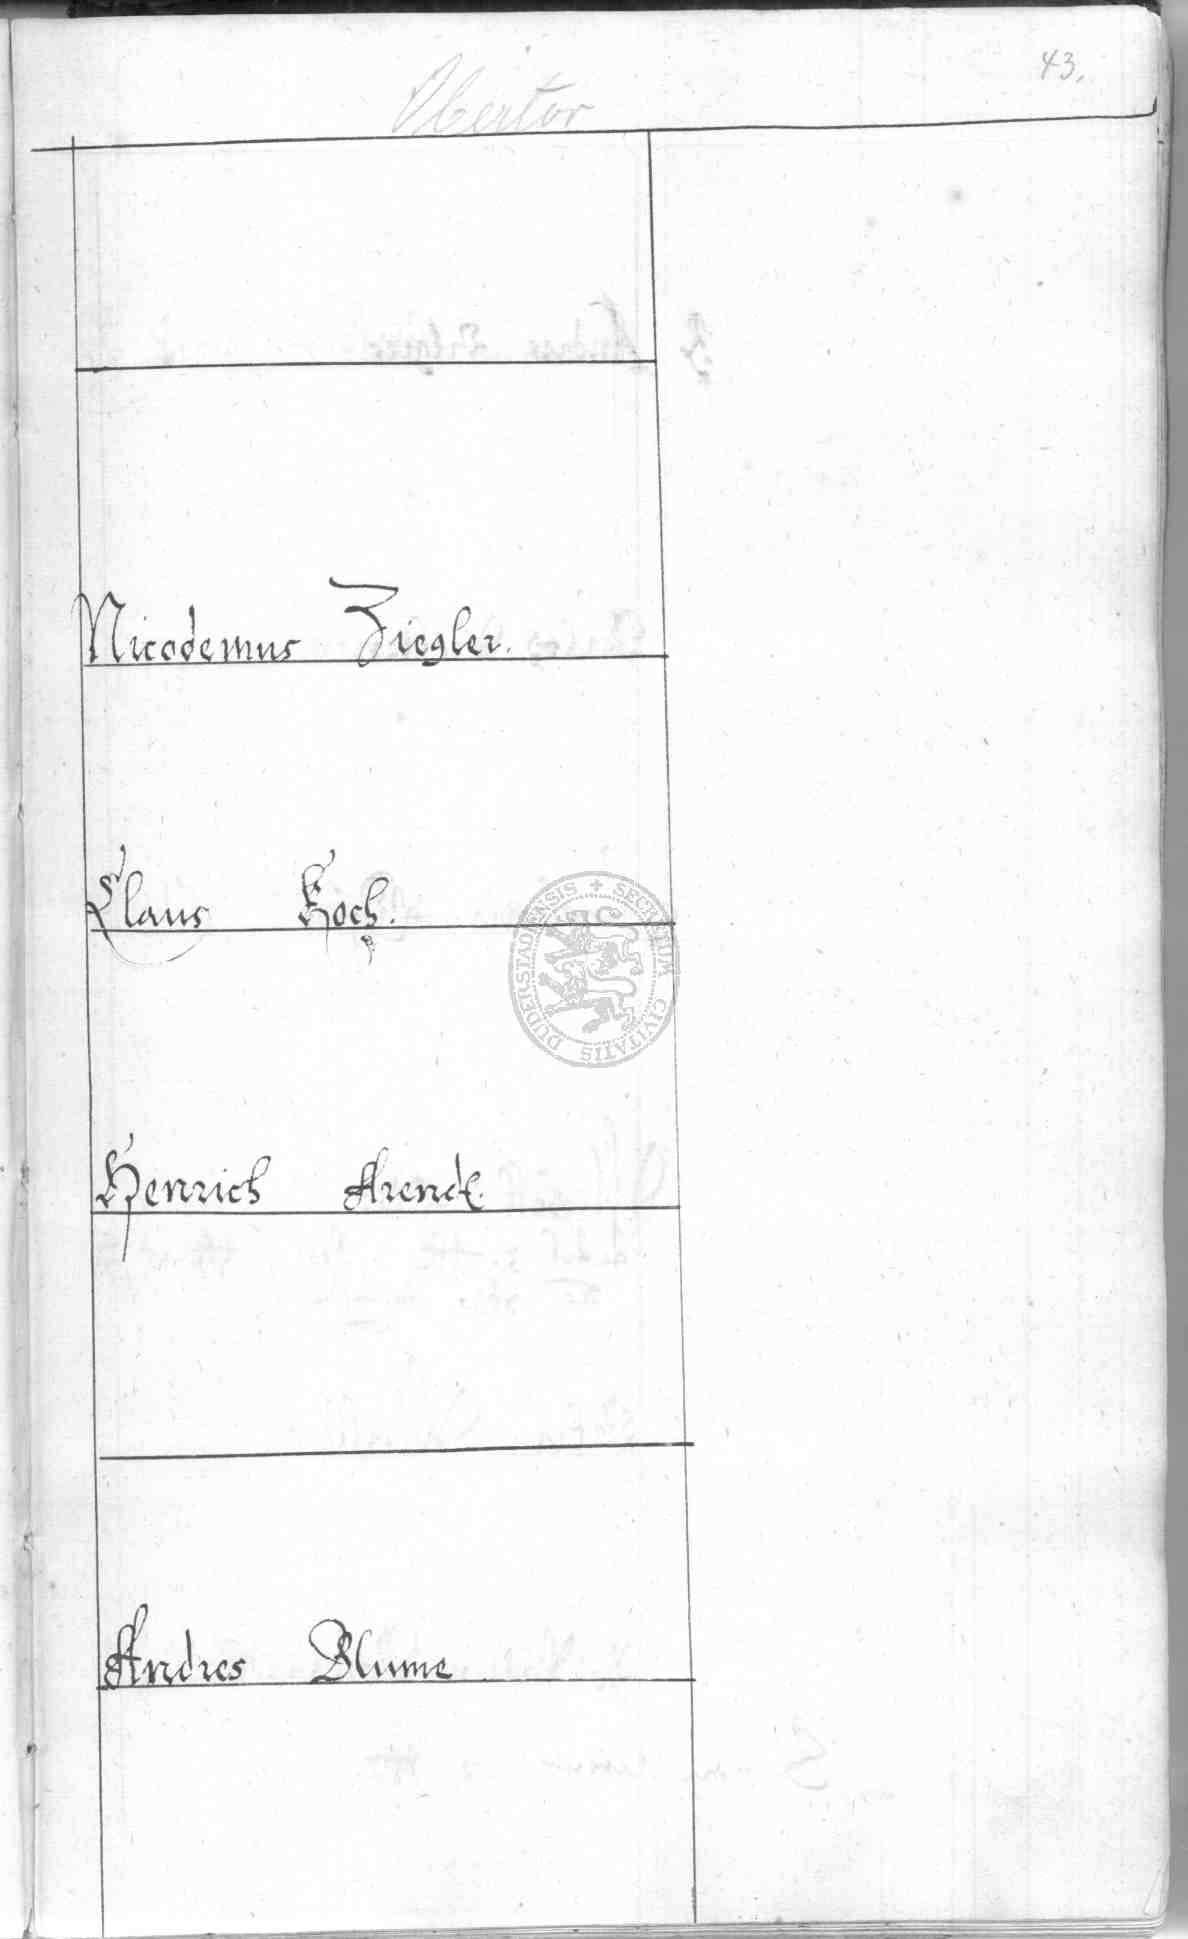 43.
Obertor
Nicodemus Ziegler.
Claus Koch.
SECRETUM CIVITATIS DUDERSTADIENSIS
Henrich Arendt.
Andres Blume